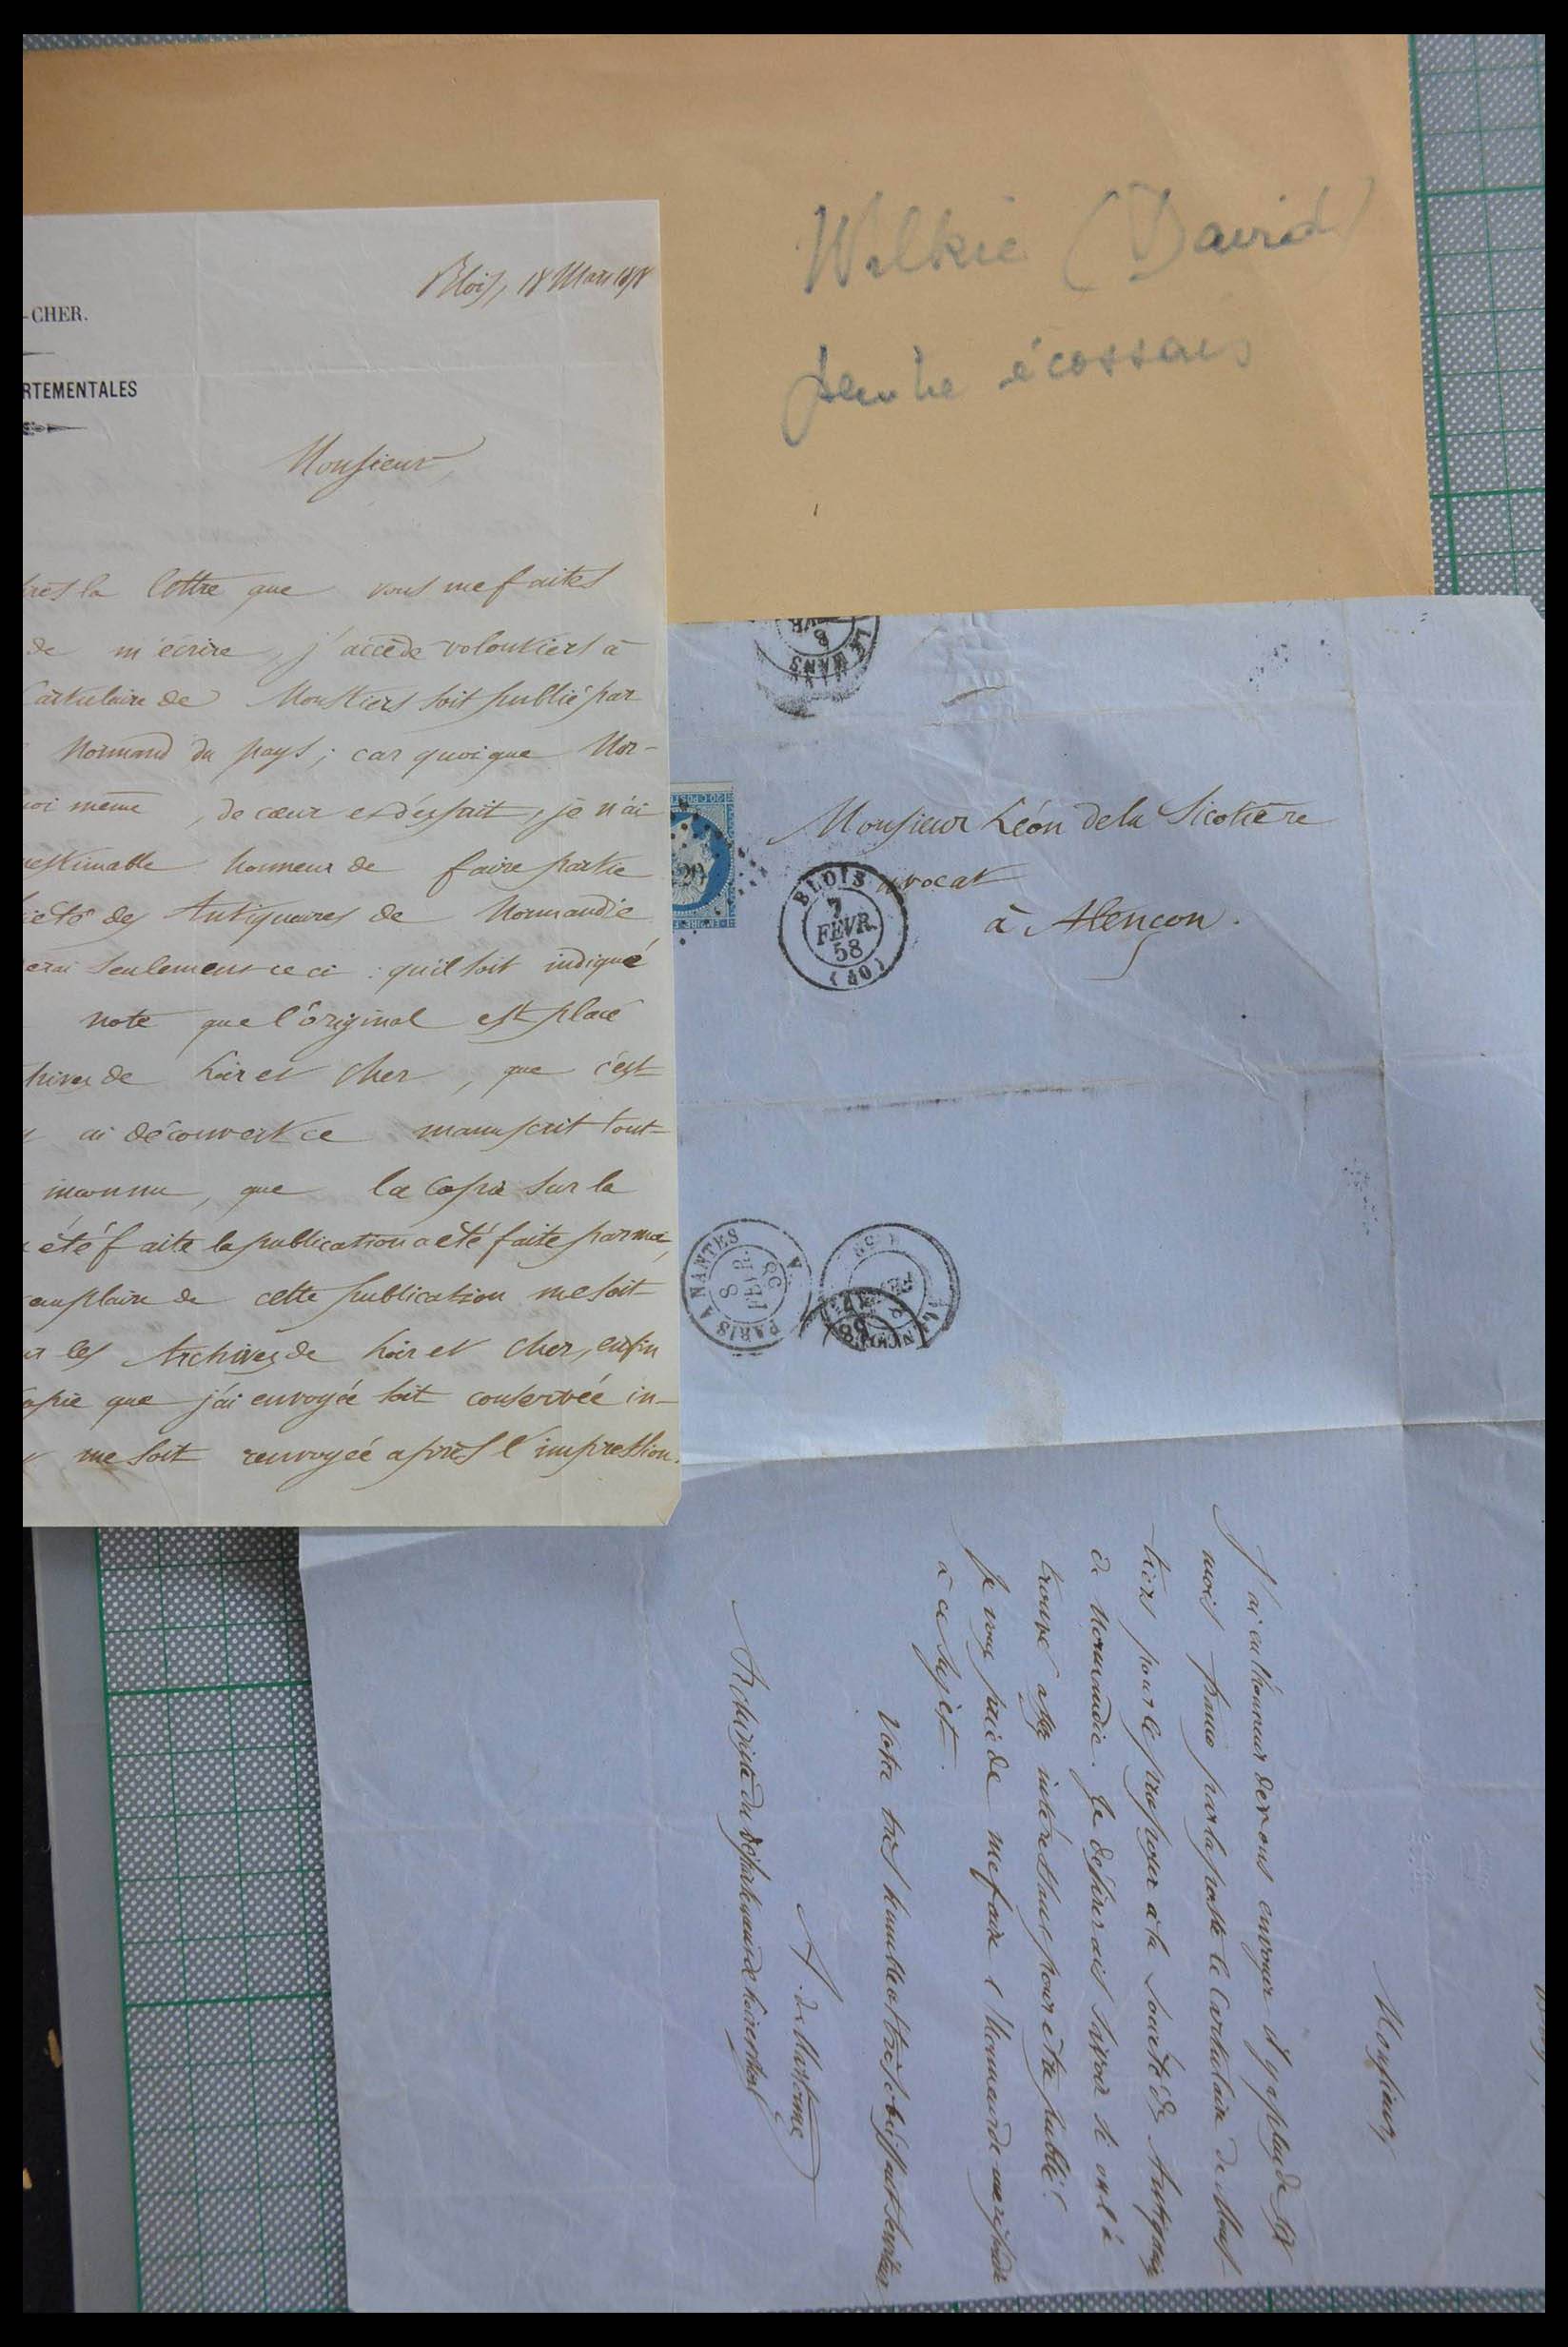 Wilkie (David)
peintre écossais
Blois, 18 Mars 1858
-CHER.
RTEMENTALES
Monsieur,
la lettre que vous me faites
de m'écrire, j'accède volontiers à
Cartulaire de Moustiers soit publié par
Normand du pays; car quoique Nor-
même, de cœur et d'esprit, je n'ai
honneur de faire partie
des Antiquaires de Normandie
seulement ceci : qu'il soit indiqué
note que l'original est placé
hives de Loir et Cher, que c'est
ai découvert ce manuscrit tout-
inconnu, que la copie sur la
été faite la publication a été faite par moi,
emplaire de cette publication me soit
les Archives de Loir et Cher, enfin
opie que j'ai envoyée soit conservée in-
me soit renvoyée après l'impression.
LE MANS
8
Monsieur Léon de la Sicotière
avocat
à Alençon.
BLOIS
7
FÉVR.
58
(40)
PARIS A NANTES
8
FEVR
58
Monsieur
J'ai eu l'honneur de vous envoyer il y a plus de six
mois franco par la poste le Cartulaire de Mous-
tiers pour le proposer à la société des Antiquaires
de Normandie. Je désirerais savoir si on l'a
trouvé assez intéressant pour être publié!
Je vous prie de me faire l'honneur de me répondre
à ce sujet.
Votre très humble et très obéissant serviteur
A. de Martonne
Archiviste du département de Loir et Cher